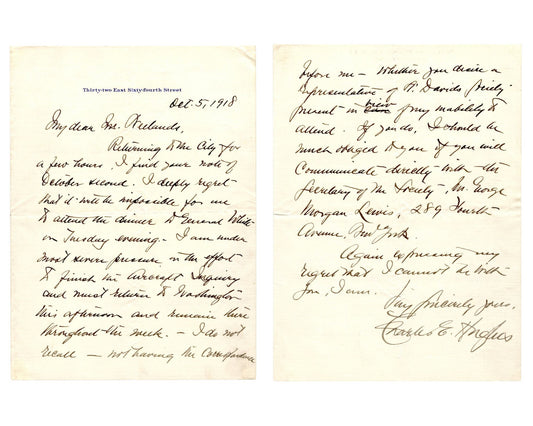 Thirty-two East Sixty-fourth Street
Oct. 5, 1918
My dear Mr.
Returning to the City for
a few hours, I find your note of
October second. I deeply regret
that it will be impossible for me
to attend the dinner to General White
on Tuesday evening. I am under
most severe pressure in the effort
to finish the Aircraft Inquiry
and must return to Washington
this afternoon and remain there
throughout the week. - I do not
recall - not having the correspondence
before me - whether you desire a
representative of St. Davids Society
present in view of my inability to
attend. If you do, I should be
much obliged to you if you will
communicate directly with the
Secretary of the Society, Mr. George
Morgan Lewis, 289 Fourth
Avenue, New York.
Again expressing my
regret that I cannot be with
you, I am,
Very sincerely yours,
Charles E. Hughes